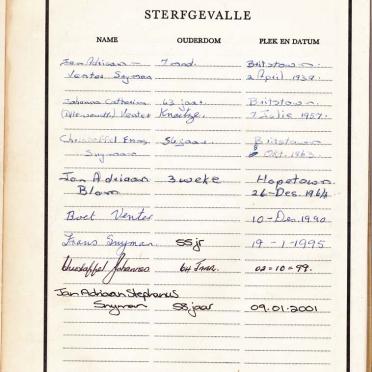 STERFGEVALLE
NAME OUDERDOM PLEK EN DATUM
Jan Adriaan 7 mnd. Britstown
Venter Snyman 2 April 1937.
Johanna Catherina 63 jaar Britstown.
Venter 7 Julie 1957.
54 jaar Britstown
Snyman Okt. 1963.
Jan Adriaan 3 weke Hopetown
Blom 26-Des. 1964
Boet Venter 10-Des. 1990
Frans Snyman. 55 jr 19-1-1995
Christoffel Johannes 64 Jaar. 02-10-99.
Jan Adriaan Stephanus
Snyman 58 jaar 09.01.2001